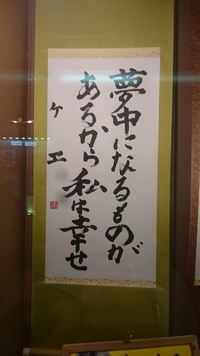 夢中になるものが
あるから私は幸せ
ケエ